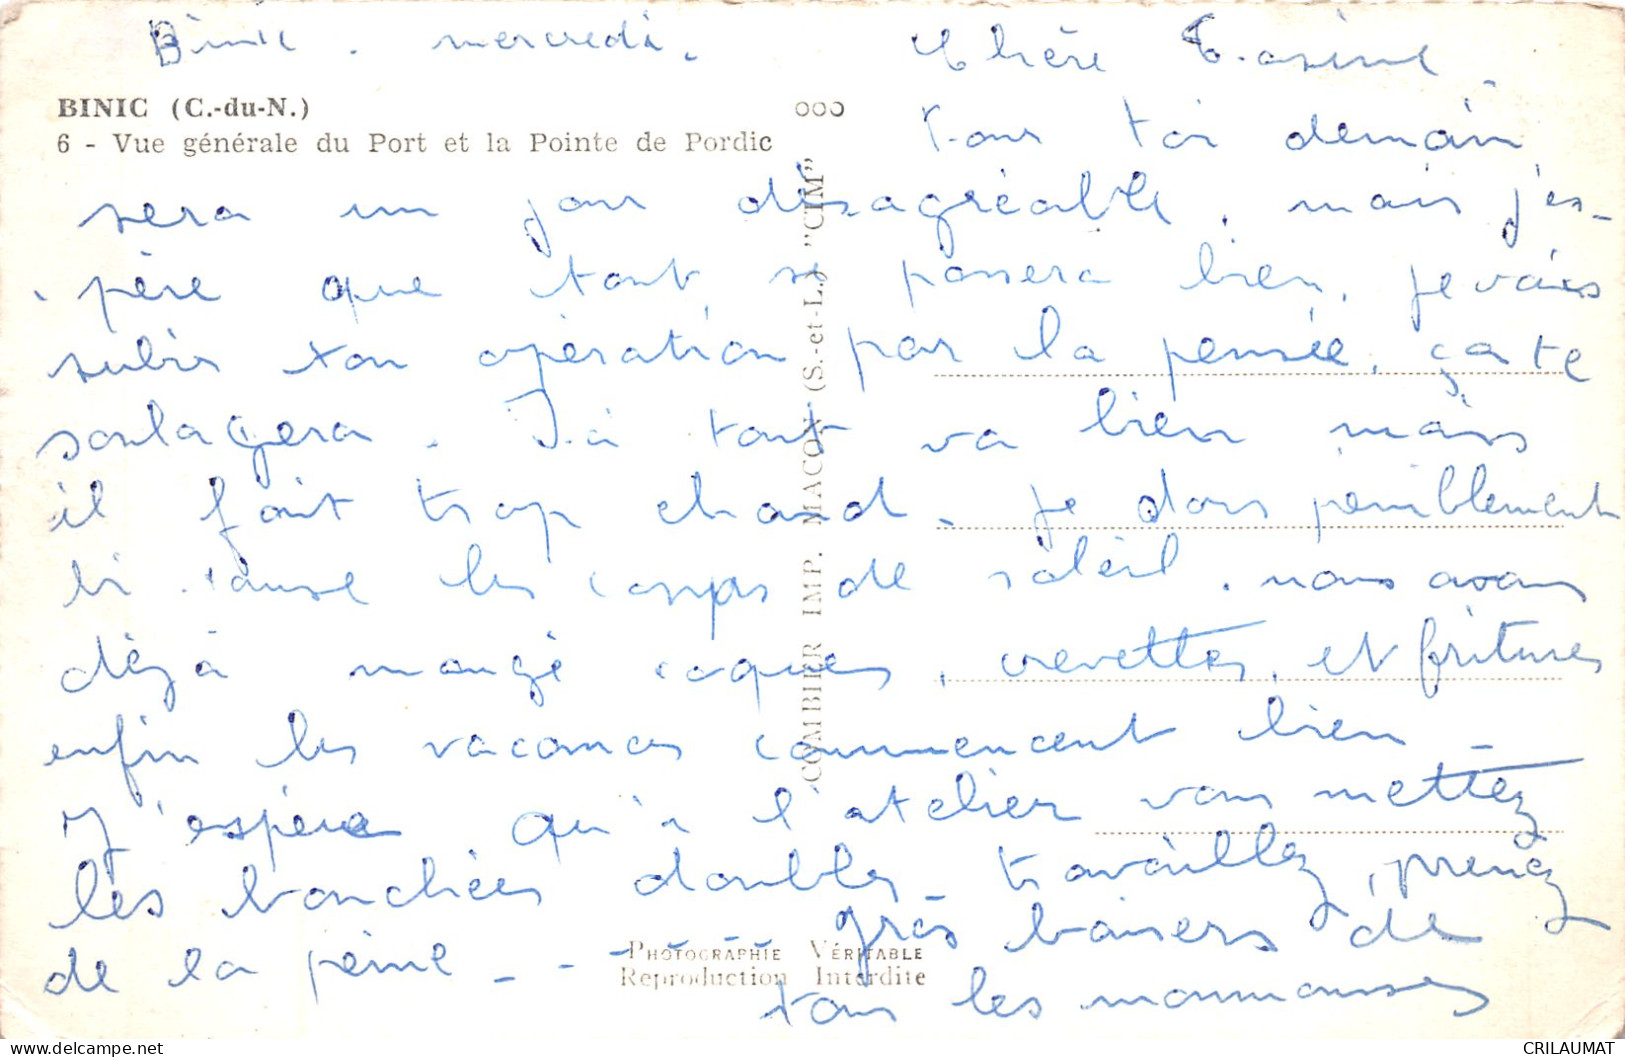 Binic. mercredi. Chère
BINIC (C.-du-N.)
6 - Vue générale du Port et la Pointe de Pordic
Pour toi demain
sera un jour désagréable, mais j'es-
père que tout se passera bien, je vais
subir ton opération par la pensée, ça te
soulagera. Ici tout va bien mais
il fait trop chaud. Je dors péniblement
cause les coups de soleil. nous avons
déjà mangé coques, crevettes, et fritures
enfin les vacances commencent bien -
J'espère qu'à l'atelier vous mettez
les bouchées doubles - travaillez, prenez
de la peine - - - - - - grôs baisers de
tous les
COMBIER IMP. MACON (S.-et-L.) "CIM"
PHOTOGRAPHIE VÉRITABLE
Reproduction Interdite
CRILAUMAT